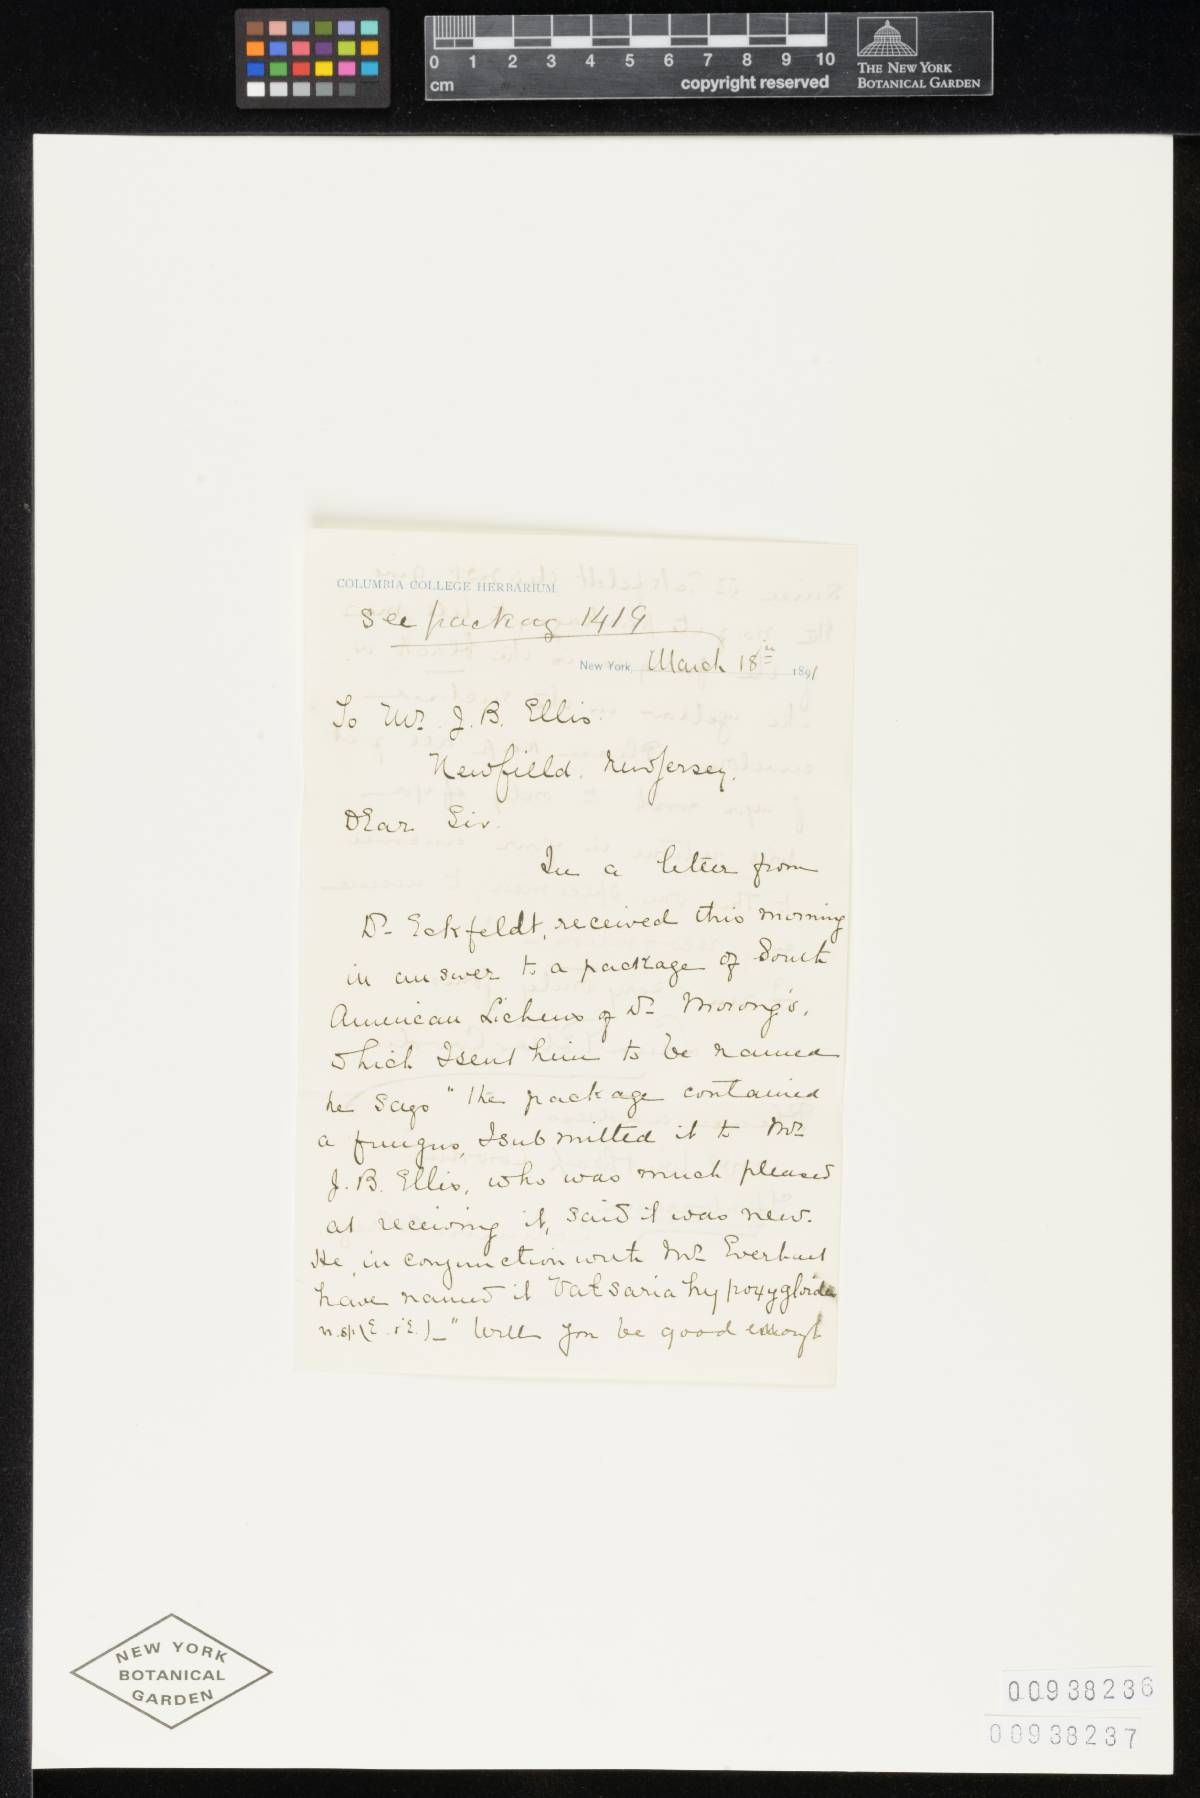 0 1 2 3 4 5 6 7 8 9 10
cm copyright reserved
THE NEW YORK
BOTANICAL GARDEN
COLUMBIA COLLEGE HERBARIUM
See packag 1419
New York, March 18th 1891
To Mr. J. B. Ellis
Newfield. New Jersey.
Dear Sir.
In a letter from
Dr. Eckfeldt, received this morning
in answer to a package of South
American Lichens of Dr. Morong's,
which I sent him to be named
he says "the package contained
a fungus, I submitted it to Mr.
J. B. Ellis, who was much pleased
at receiving it, said it was new.
He, in conjunction with Mr. Everhart
have named it Valsaria hypoxyloides
n.sp. (E. & E.) — " Will you be good enough
NEW YORK
BOTANICAL
GARDEN
00938236
00938237